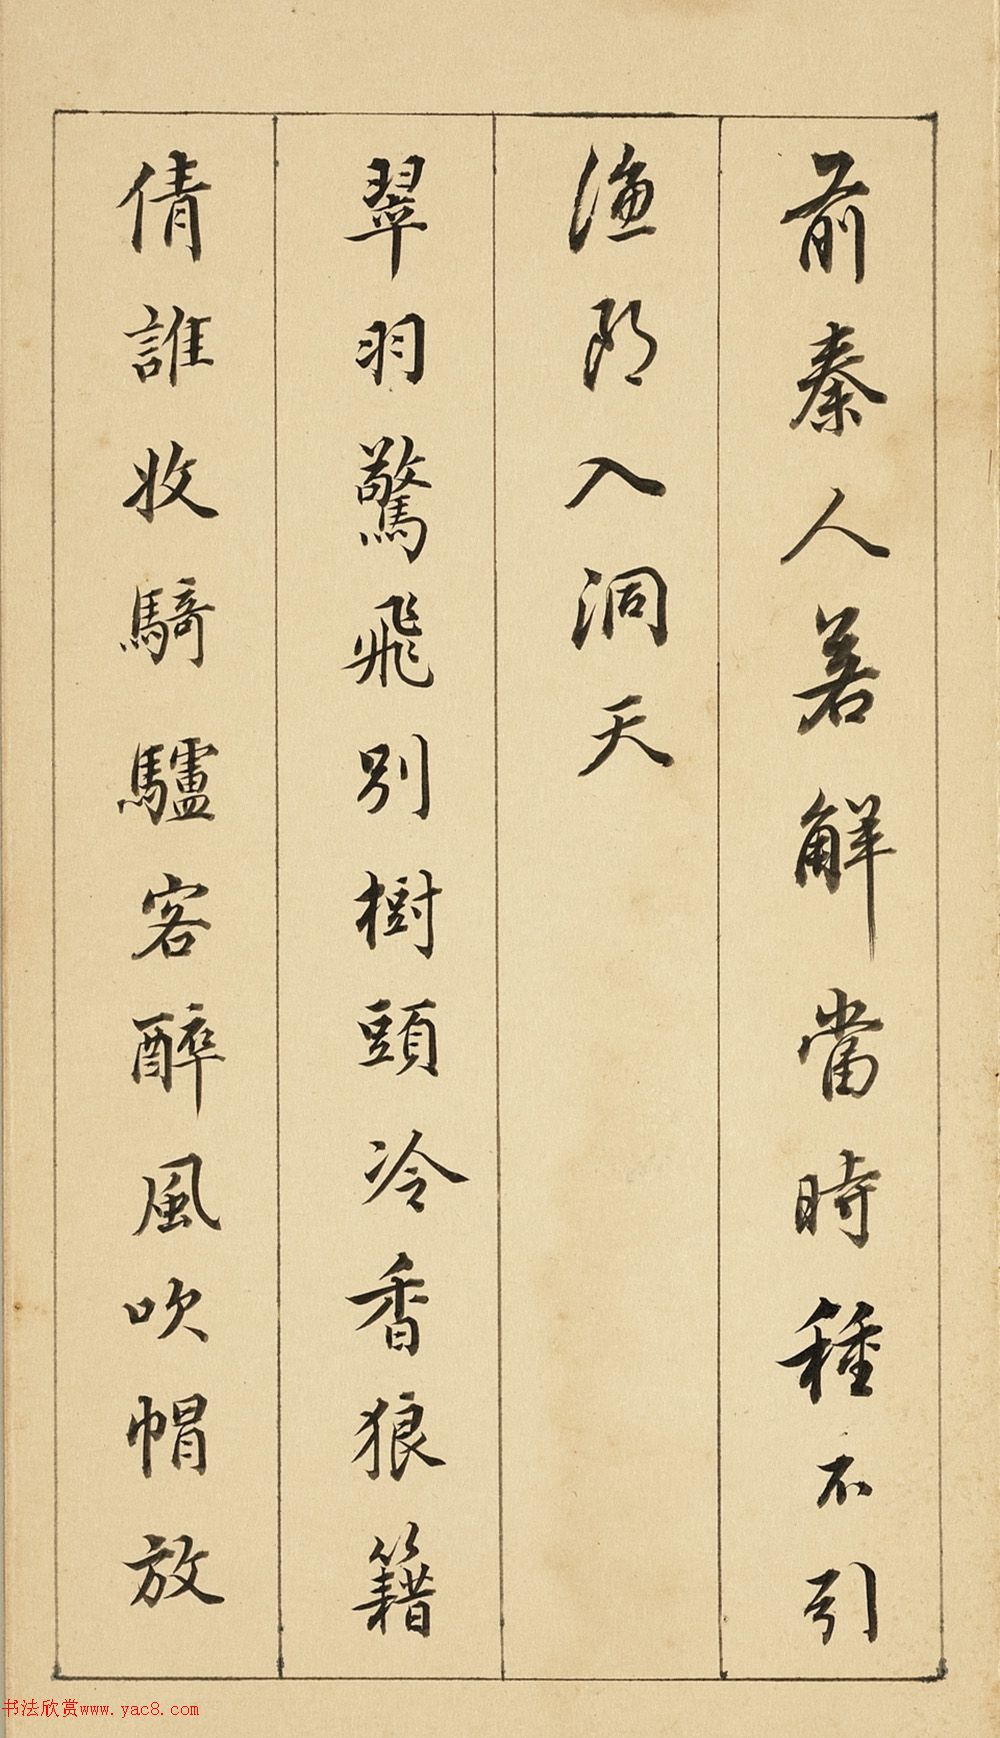 前秦人若解當時種不引
漁郎入洞天
翠羽驚飛別樹頭冷香狼籍
倩誰收騎驢客醉風吹帽放
书法欣赏www.yac8.com